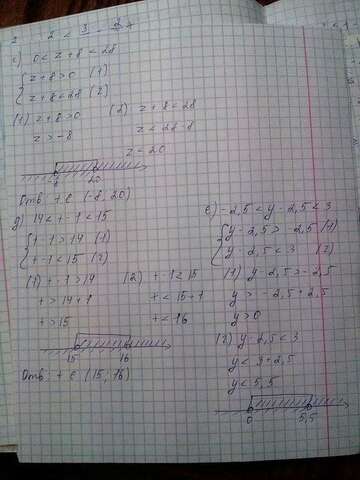 с) 0 < z + 8 < 28
{ z + 8 > 0 (1)
z + 8 < 28 (2)
(1) z + 8 > 0
z > -8
(2) z + 8 < 28
z < 28-8
z < 20
-8 20
Отв: t ∈ (-8, 20)
д) 14 < t - 1 < 15
{ t - 1 > 14 (1)
t - 1 < 15 (2)
(1) t - 1 > 14
t > 14 + 1
t > 15
(2) t - 1 < 15
t < 15 + 1
t < 16
15 16
Отв: t ∈ (15, 16)
е) -2,5 < y - 2,5 < 3
{ y - 2,5 > -2,5 (1)
y - 2,5 < 3 (2)
(1) y - 2,5 > -2,5
y > -2,5 + 2,5
y > 0
(2) y - 2,5 < 3
y < 3 + 2,5
y < 5,5
0 5,5